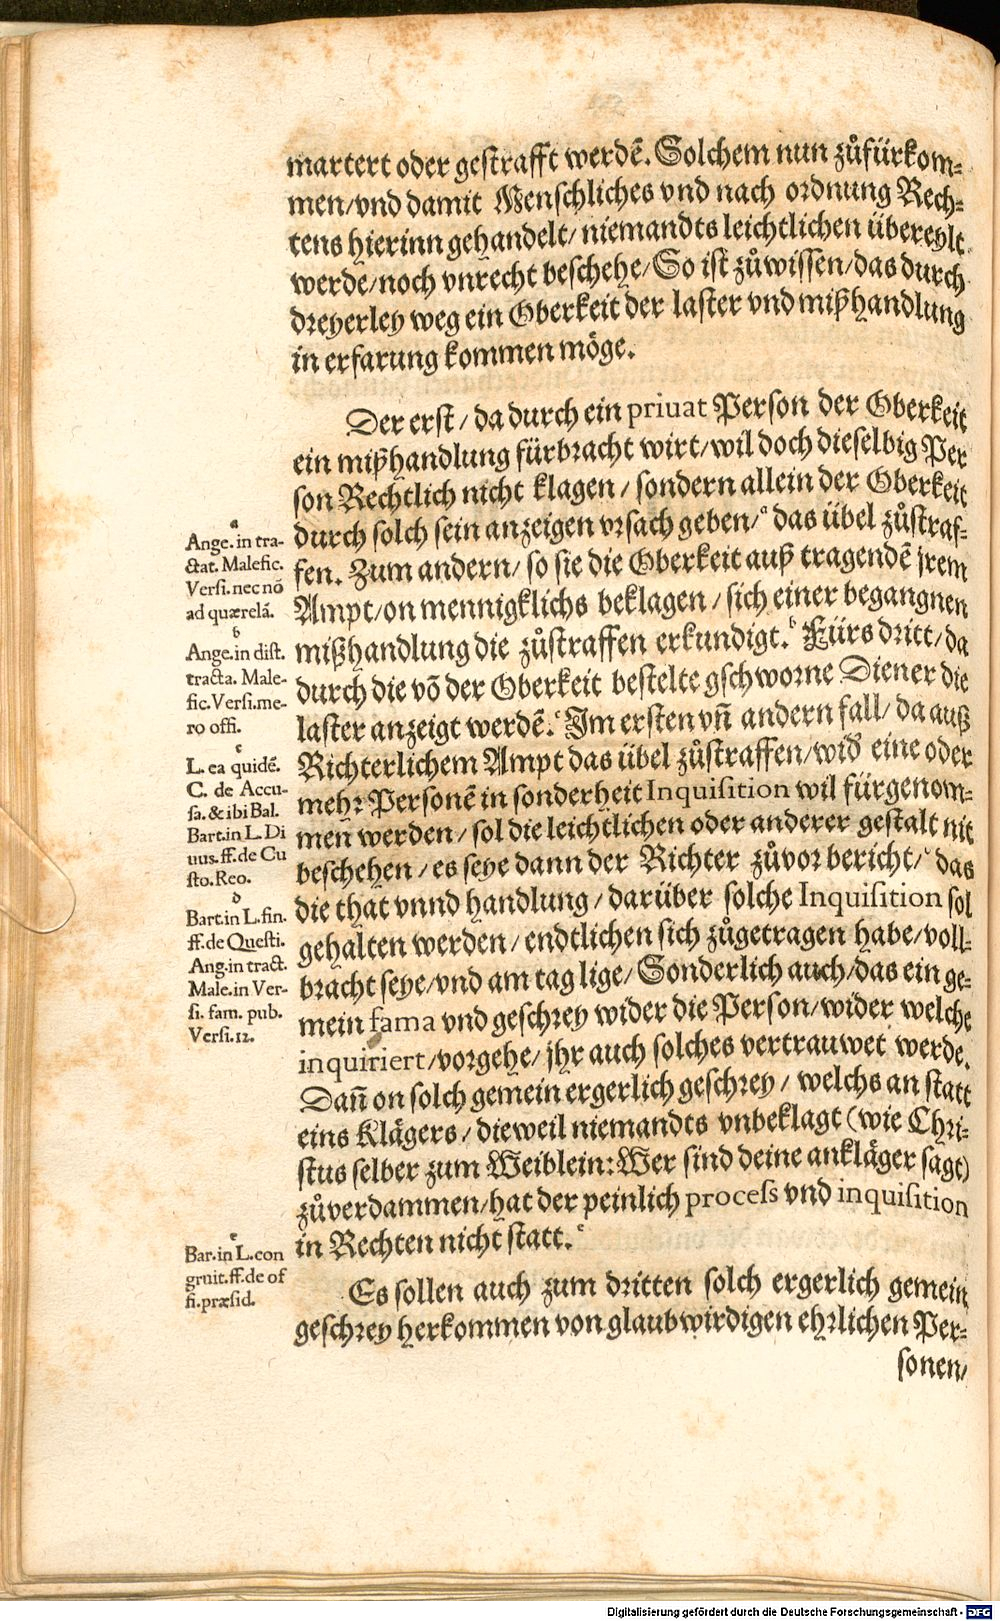 martert oder gestrafft werdẽ. Solchem nun zůfürkom⸗
men/vnd damit Menschliches vnd nach ordnung Rech⸗
tens hierinn gehandelt/ niemandts leichtlichen übereylt
werde/noch vnrecht beschehe/ So ist zůwissen/das durch
dreyerley weg ein Oberkeit der laster vnd mißhandlung
in erfarung kommen möge.
Der erst/ da durch ein priuat Person der Oberkeit
ein mißhandlung fürbracht wirt/wil doch dieselbig Per
son Rechtlich nicht klagen/ sondern allein der Oberkeit
durch solch sein anzeigen vrsach geben/ᵃ das übel zůstraf⸗
fen. Zum andern/ so sie die Oberkeit auß tragendẽ jrem
Ampt/on mennigklichs beklagen/ sich einer begangnen
mißhandlung die zůstraffen erkundigt.ᵇ Fürs dritt/ da
durch die võ der Oberkeit bestelte gschworne Diener die
laster anzeigt werdẽ.ᶜ Im ersten vñ andern fall/ da auß
Richterlichem Ampt das übel zůstraffen/wid̕ eine oder
mehr Personẽ in sonderheit Inquisition wil fürgenom⸗
men werden/ sol die leichtlichen oder anderer gestalt nit
beschehen/ es seye dann der Richter zůvor bericht/ᵈ das
die that vnnd handlung/ darüber solche Inquisition sol
gehalten werden/ endtlichen sich zůgetragen habe/voll⸗
bracht seye/vnd am tag lige/ Sonderlich auch/das ein ge⸗
mein fama vnd geschrey wider die Person/wider welche
inquiriert/vorgehe/ jhr auch solches vertrauwet werde.
Dañ on solch gemein ergerlich geschrey/ welchs an statt
eins Klägers/ dieweil niemandts vnbeklagt (wie Chri⸗
stus selber zum Weiblein: Wer sind deine ankläger sagt)
zůverdammen/hat der peinlich process vnd inquisition
in Rechten nicht statt.ᵉ
Es sollen auch zum dritten solch ergerlich gemein
geschrey herkommen von glaubwirdigen ehrlichen Per⸗
sonen/
a
Ange. in tra-
ctat. Malefic.
Versi. nec nõ
ad quærelã.
b
Ange. in dist.
tracta. Male-
fic. Versi. me-
ro offi.
c
L. ea quidẽ.
C. de Accu-
sa. & ibi Bal.
Bart. in L. Di
uus. ff. de Cu
sto. Reo.
d
Bart. in L. fin.
ff. de Questi.
Ang. in tract.
Male. in Ver-
si. fam. pub.
Versi. 12.
e
Bar. in L. con
gruit. ff. de of
fi. præsid.
Digitalisierung gefördert durch die Deutsche Forschungsgemeinschaft - DFG